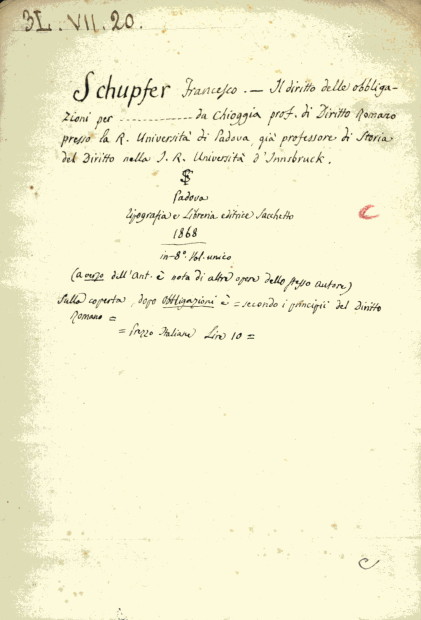 3L.VII.20.
Schupfer Francesco. — Il diritto delle obbliga-
zioni per ------------ da Chioggia prof. di Diritto Romano
presso la R. Università di Padova già professore di Storia
del Diritto nella I. R. Università d'Innsbruck.
$
Padova
tipografia e Libreria editrice Sacchetto
1868
in-8º. Vol. unico
(a verso dell'Ant. è nota di altre opere dello stesso autore)
Sulla coperta, dopo Obbligazioni è = secondo i principii del Diritto
Romano =
= Prezzo Italiane Lire 10 =
C
C